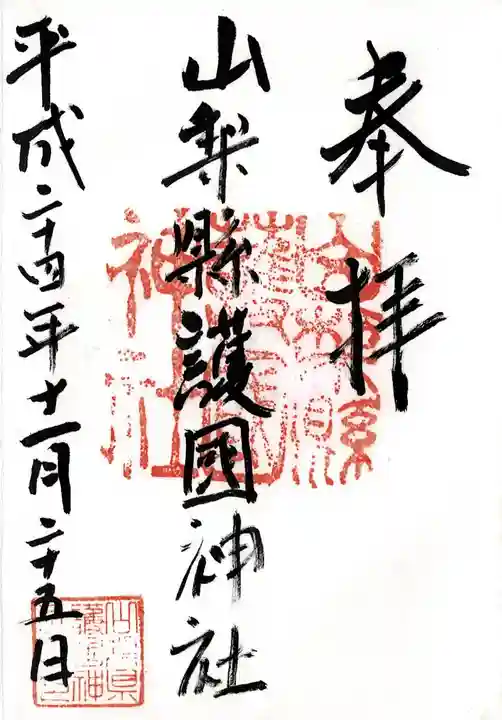 奉拝
山梨縣護國神社
平成二十四年十一月二十五日
山梨縣護國神社